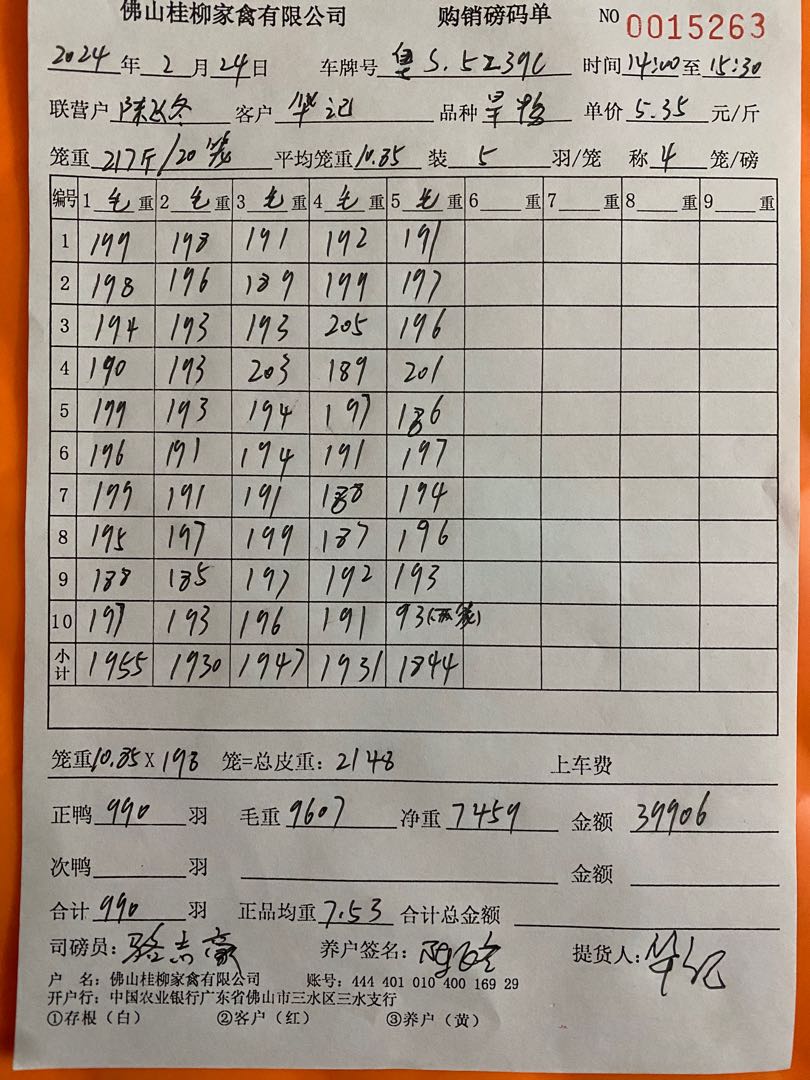 佛山桂柳家禽有限公司 购销磅码单 NO 0015263
2024 年 2 月 24 日 车牌号 粤S.5Z39L 时间 14:00 至 15:30
联营户 客户 华记 品种 单价 5.35 元/斤
笼重 217斤/20笼 平均笼重 10.85 装 5 羽/笼 称 4 笼/磅
编号 1 毛 重 2 毛 重 3 毛 重 4 毛 重 5 毛 重 6 重 7 重 8 重 9 重
1 199 198 191 192 191
2 198 196 189 199 197
3 194 193 193 205 196
4 190 193 203 189 201
5 199 193 194 197 186
6 196 191 194 191 197
7 199 191 191 188 194
8 195 197 199 187 196
9 188 185 197 192 193
10 197 193 196 191 93(两笼)
小计 1955 1930 1947 1931 1844
笼重 10.85 X 198 笼=总皮重: 2148 上车费
正鸭 990 羽 毛重 9607 净重 7459 金额 39906
次鸭 羽 金额
合计 990 羽 正品均重 7.53 合计总金额
司磅员: 骆志豪 养户签名: 提货人: 华记
户 名: 佛山桂柳家禽有限公司 账号: 444 401 010 400 169 29
开户行: 中国农业银行广东省佛山市三水区三水支行
①存根(白) ②客户(红) ③养户(黄)